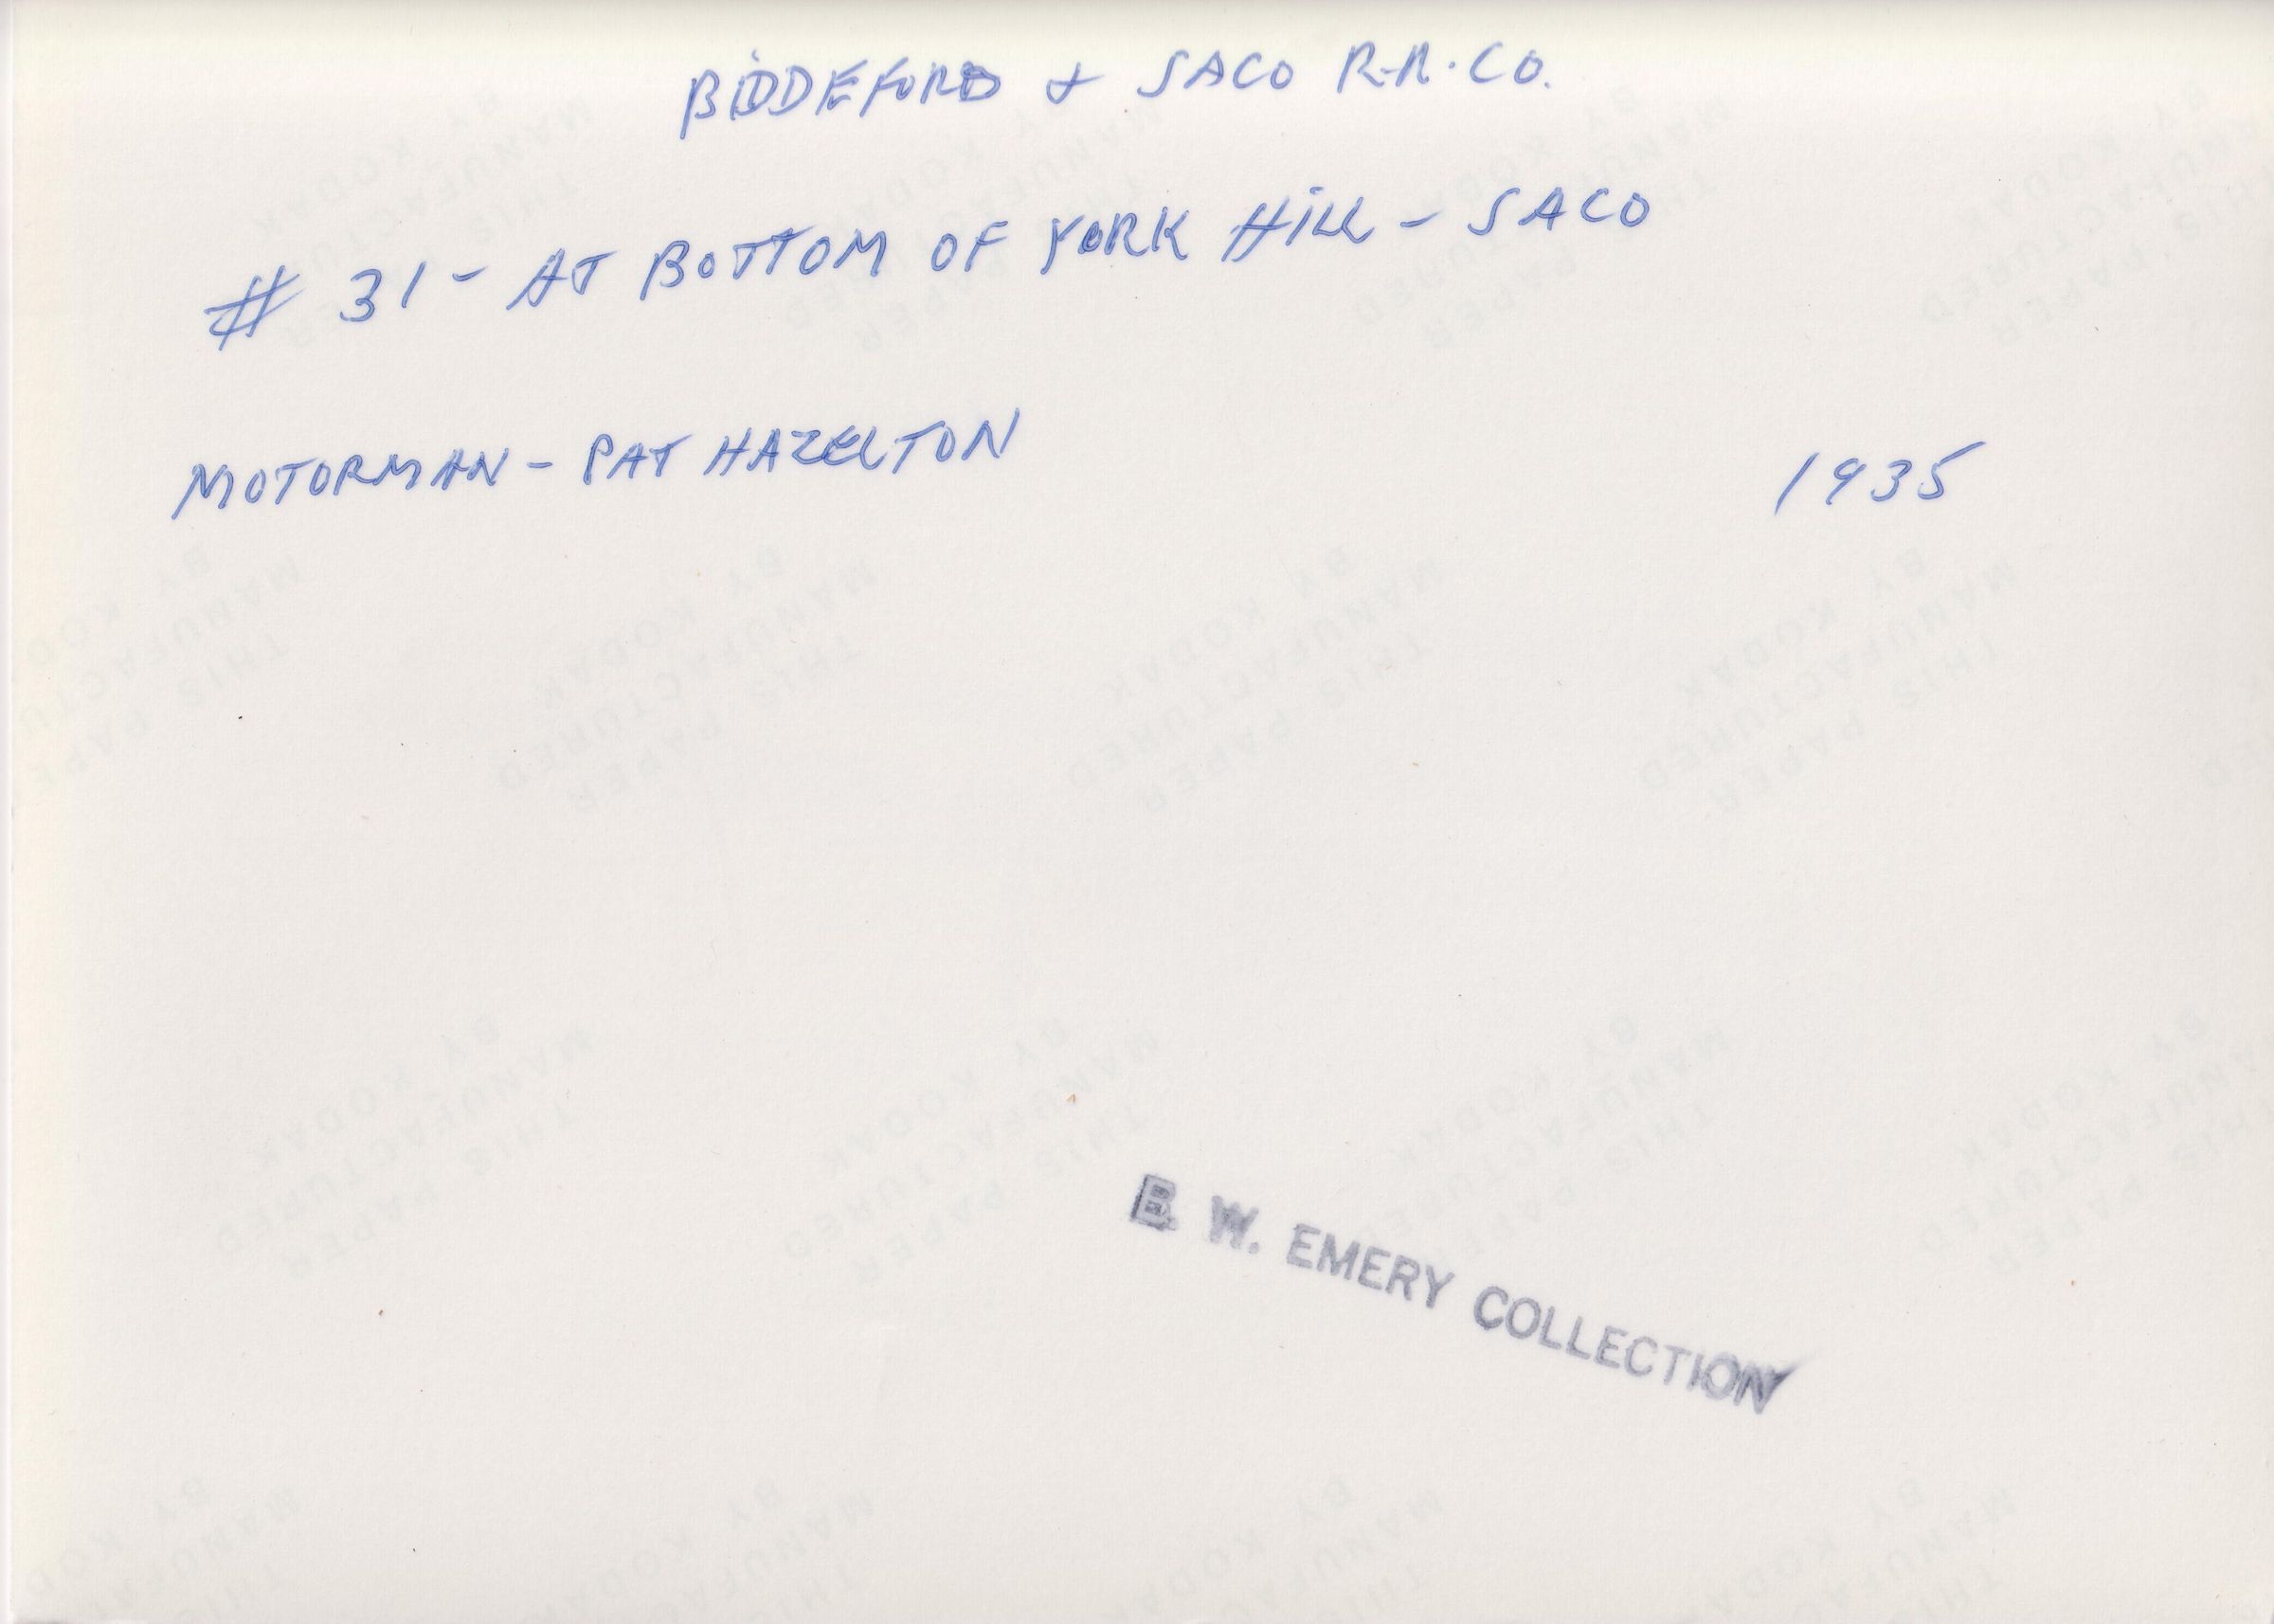 BIDDEFORD & SACO R.R. CO.
# 31 - AT BOTTOM OF YORK HILL - SACO
MOTORMAN - PAT HAZELTON 1935
W. EMERY COLLECTION
THIS PAPER
MANUFACTURED
BY KODAK